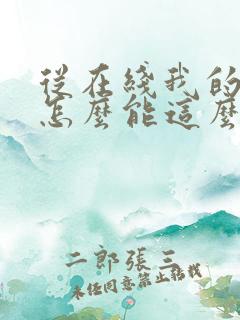 從在綫我的
怎麼能這麼
二郎張三
未經同意禁止轉載